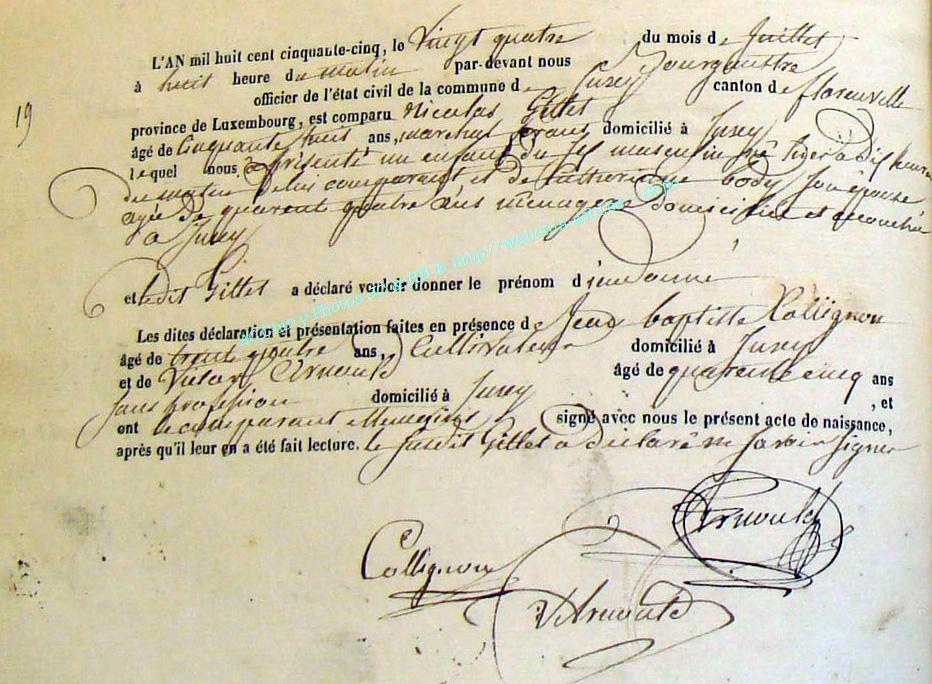 19
L'AN mil huit cent cinquante-cinq, le Vingt quatre du mois de Juillet
à huit heure du matin par-devant nous
officier de l'état civil de la commune de Jusey canton de florenville
province de Luxembourg, est comparu Nicolas Gillet
âgé de Cinquante huit ans, domicilié à Jusey
lequel nous a présenté un enfant du masculin né à dix heures
du matin de lui comparant et de Catherinne body son épouse
agée de quarent quatre ans menagere domiciliée et accouchée
à Jusey
et ledit Gillet a déclaré vouloir donner le prénom d
Les dites déclaration et présentation faites en présence de Jean baptiste Collignon
âgé de trent quatre ans, Cultivateur domicilié à Jusey
et de Victor Arnould âgé de quarente cinq ans
sans profession domicilié à Jusey , et
ont signé avec nous le présent acte de naissance,
après qu'il leur en a été fait lecture. le susdit Gillet a déclaré ne savoir signer
Arnould
Collignon
VArnould